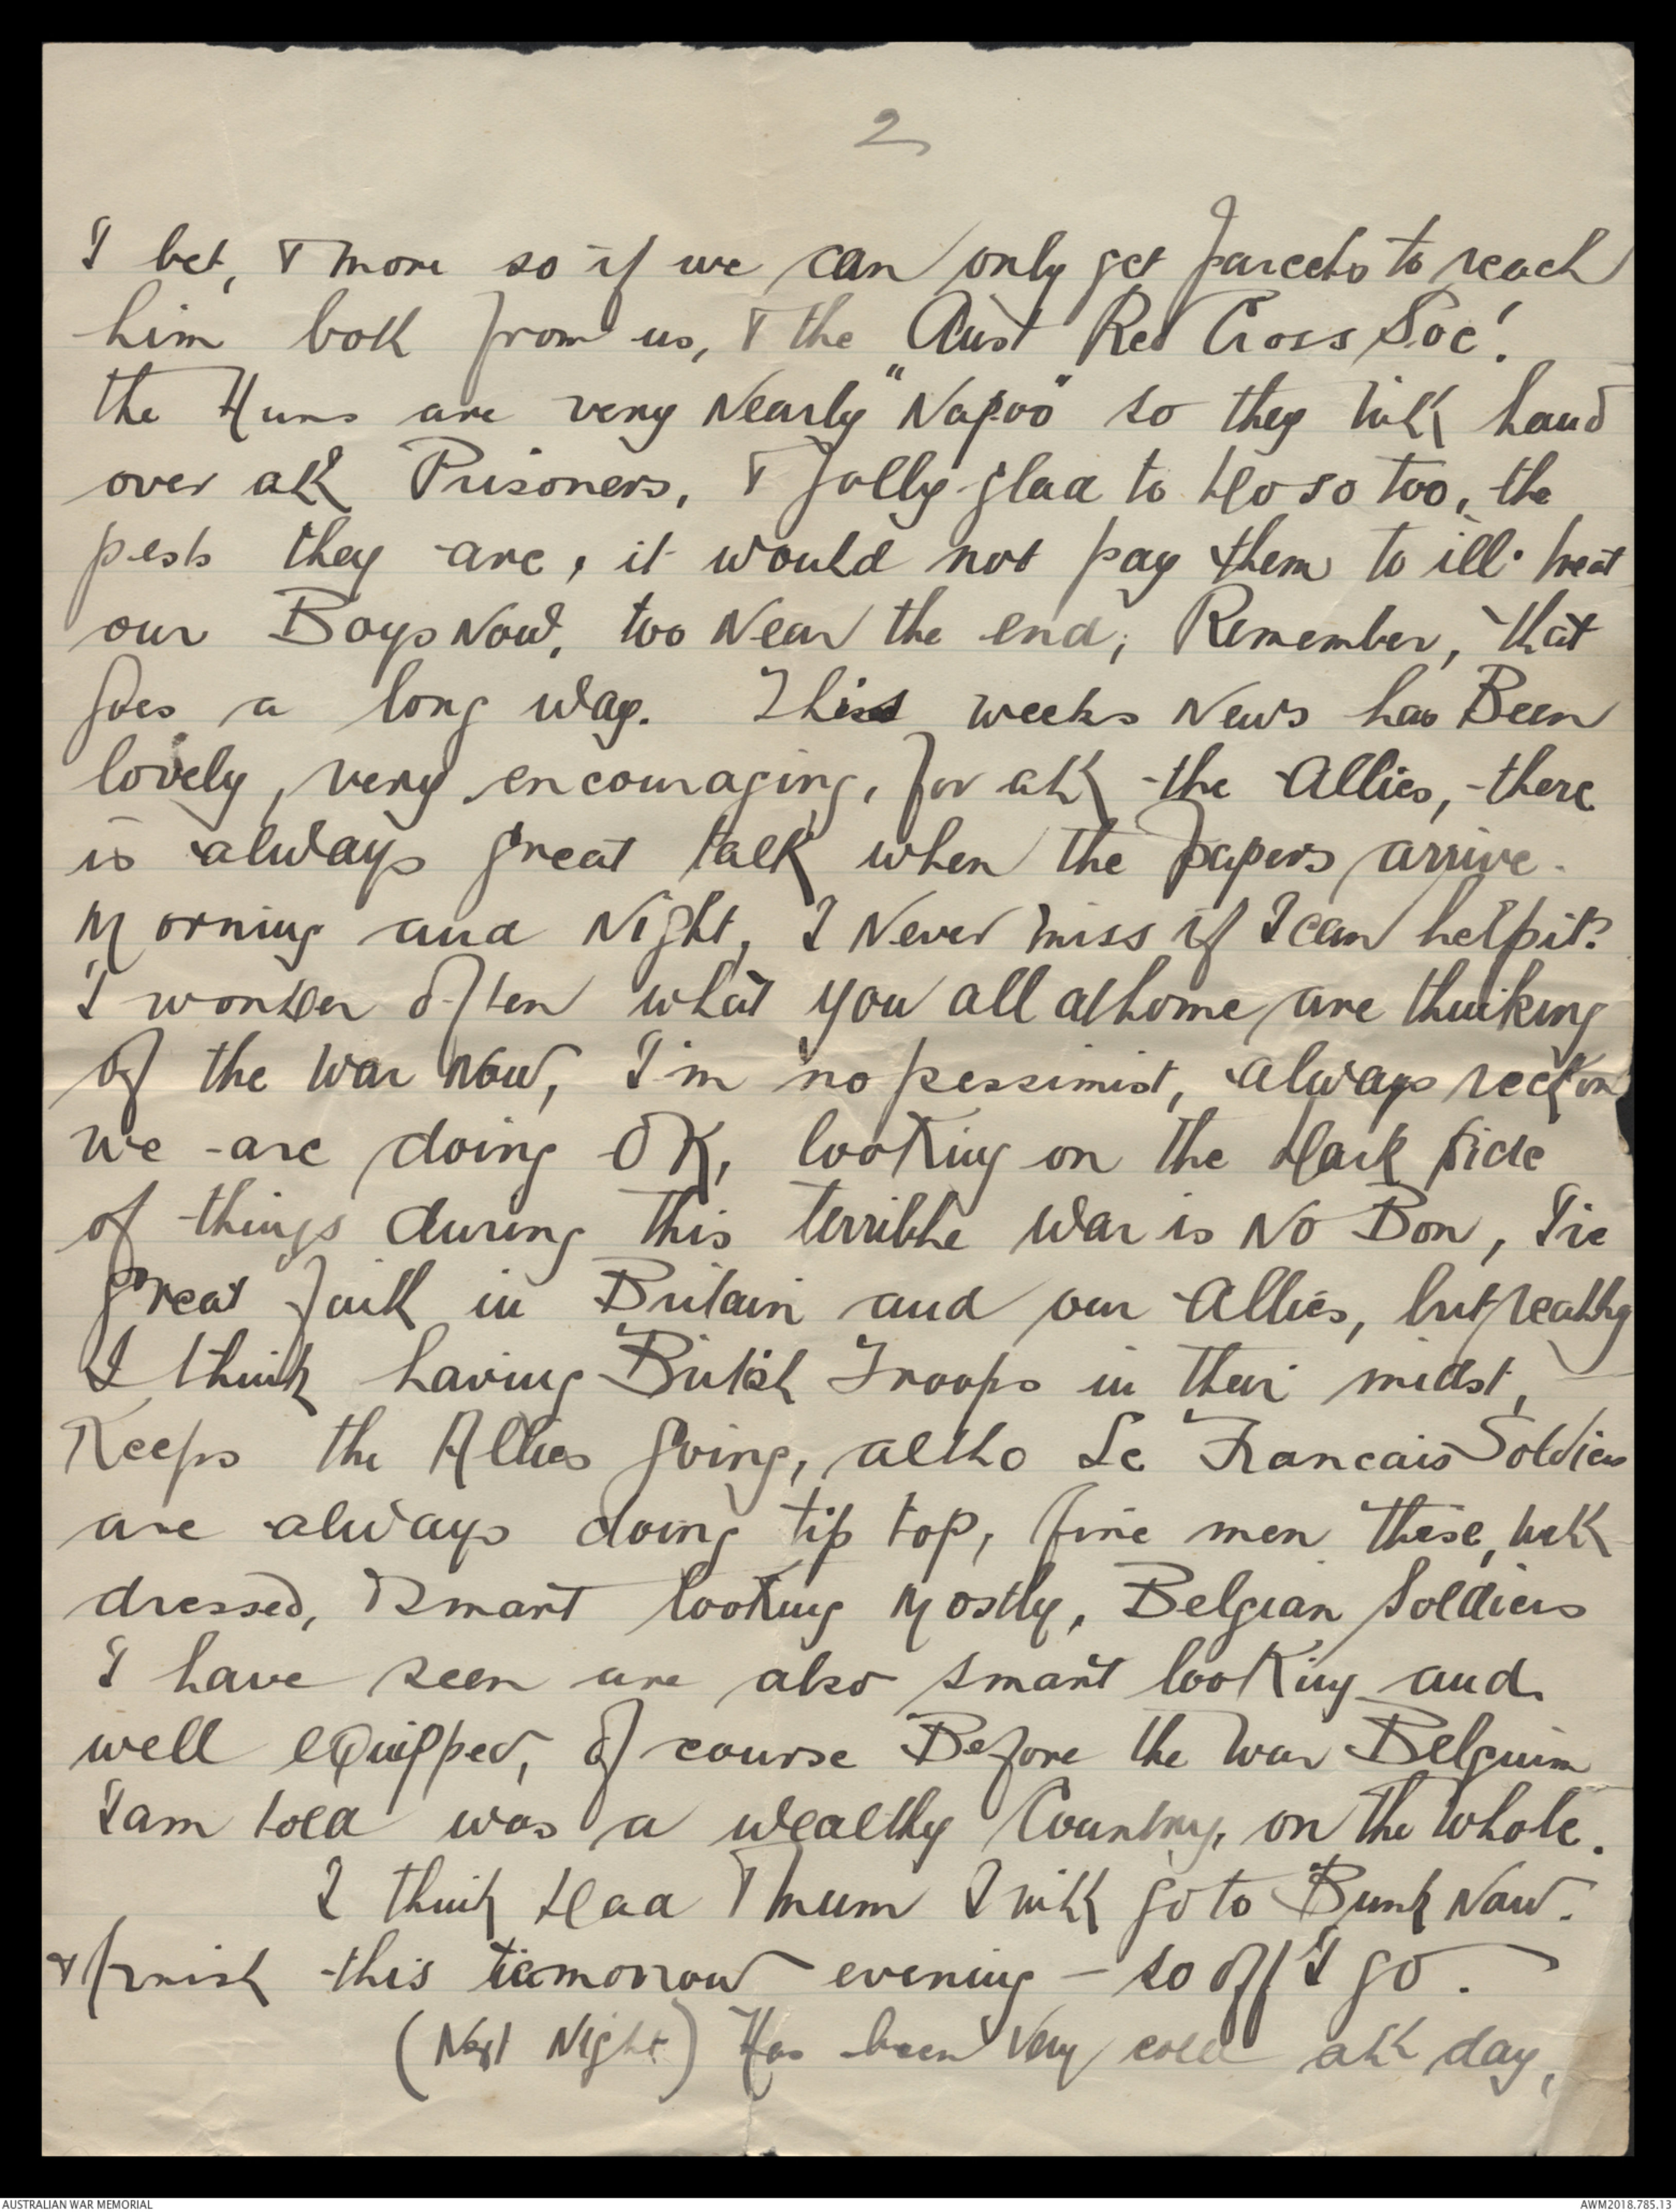 2
I bet, & more so if we can only get parcels to reach
him both from us, & the Aust Red Cross Soc!
the Huns are very Nearly "Napoo" so they will hand
over all Prisoners, & jolly glad to do so too, the
pests they are, it would not pay them to ill-treat
our Boys Now, too Near the end; Remember, that
goes a long way. This weeks News has Been
lovely, very encouraging, for all the Allies, there
is always great talk when the papers arrive.
Morning and Night, I Never miss if I can help it?
I wonder often what you all at home are thinking
of the war Now, I'm no pessimist, always reckon
we are doing OK, looking on the dark side
of things during this terrible war is No Bon, I've
great faith in Britain and our Allies, but really
I think having British Troops in their midst,
Keeps the Allies going, altho Le Francais Soldiers
are always doing tip top, fine men these, well
dressed, & smart looking Mostly, Belgian Soldiers
I have seen are also smart looking and
well equipped, of course Before the war Belguim
I am told was a wealthy Country, on the whole.
I think Dad & Mum I will go to Bunk Now.
& finish this tomorrow evening - so off I go.
(Next Night) Has been very cold all day,
AUSTRALIAN WAR MEMORIAL
AWM2018.785.13